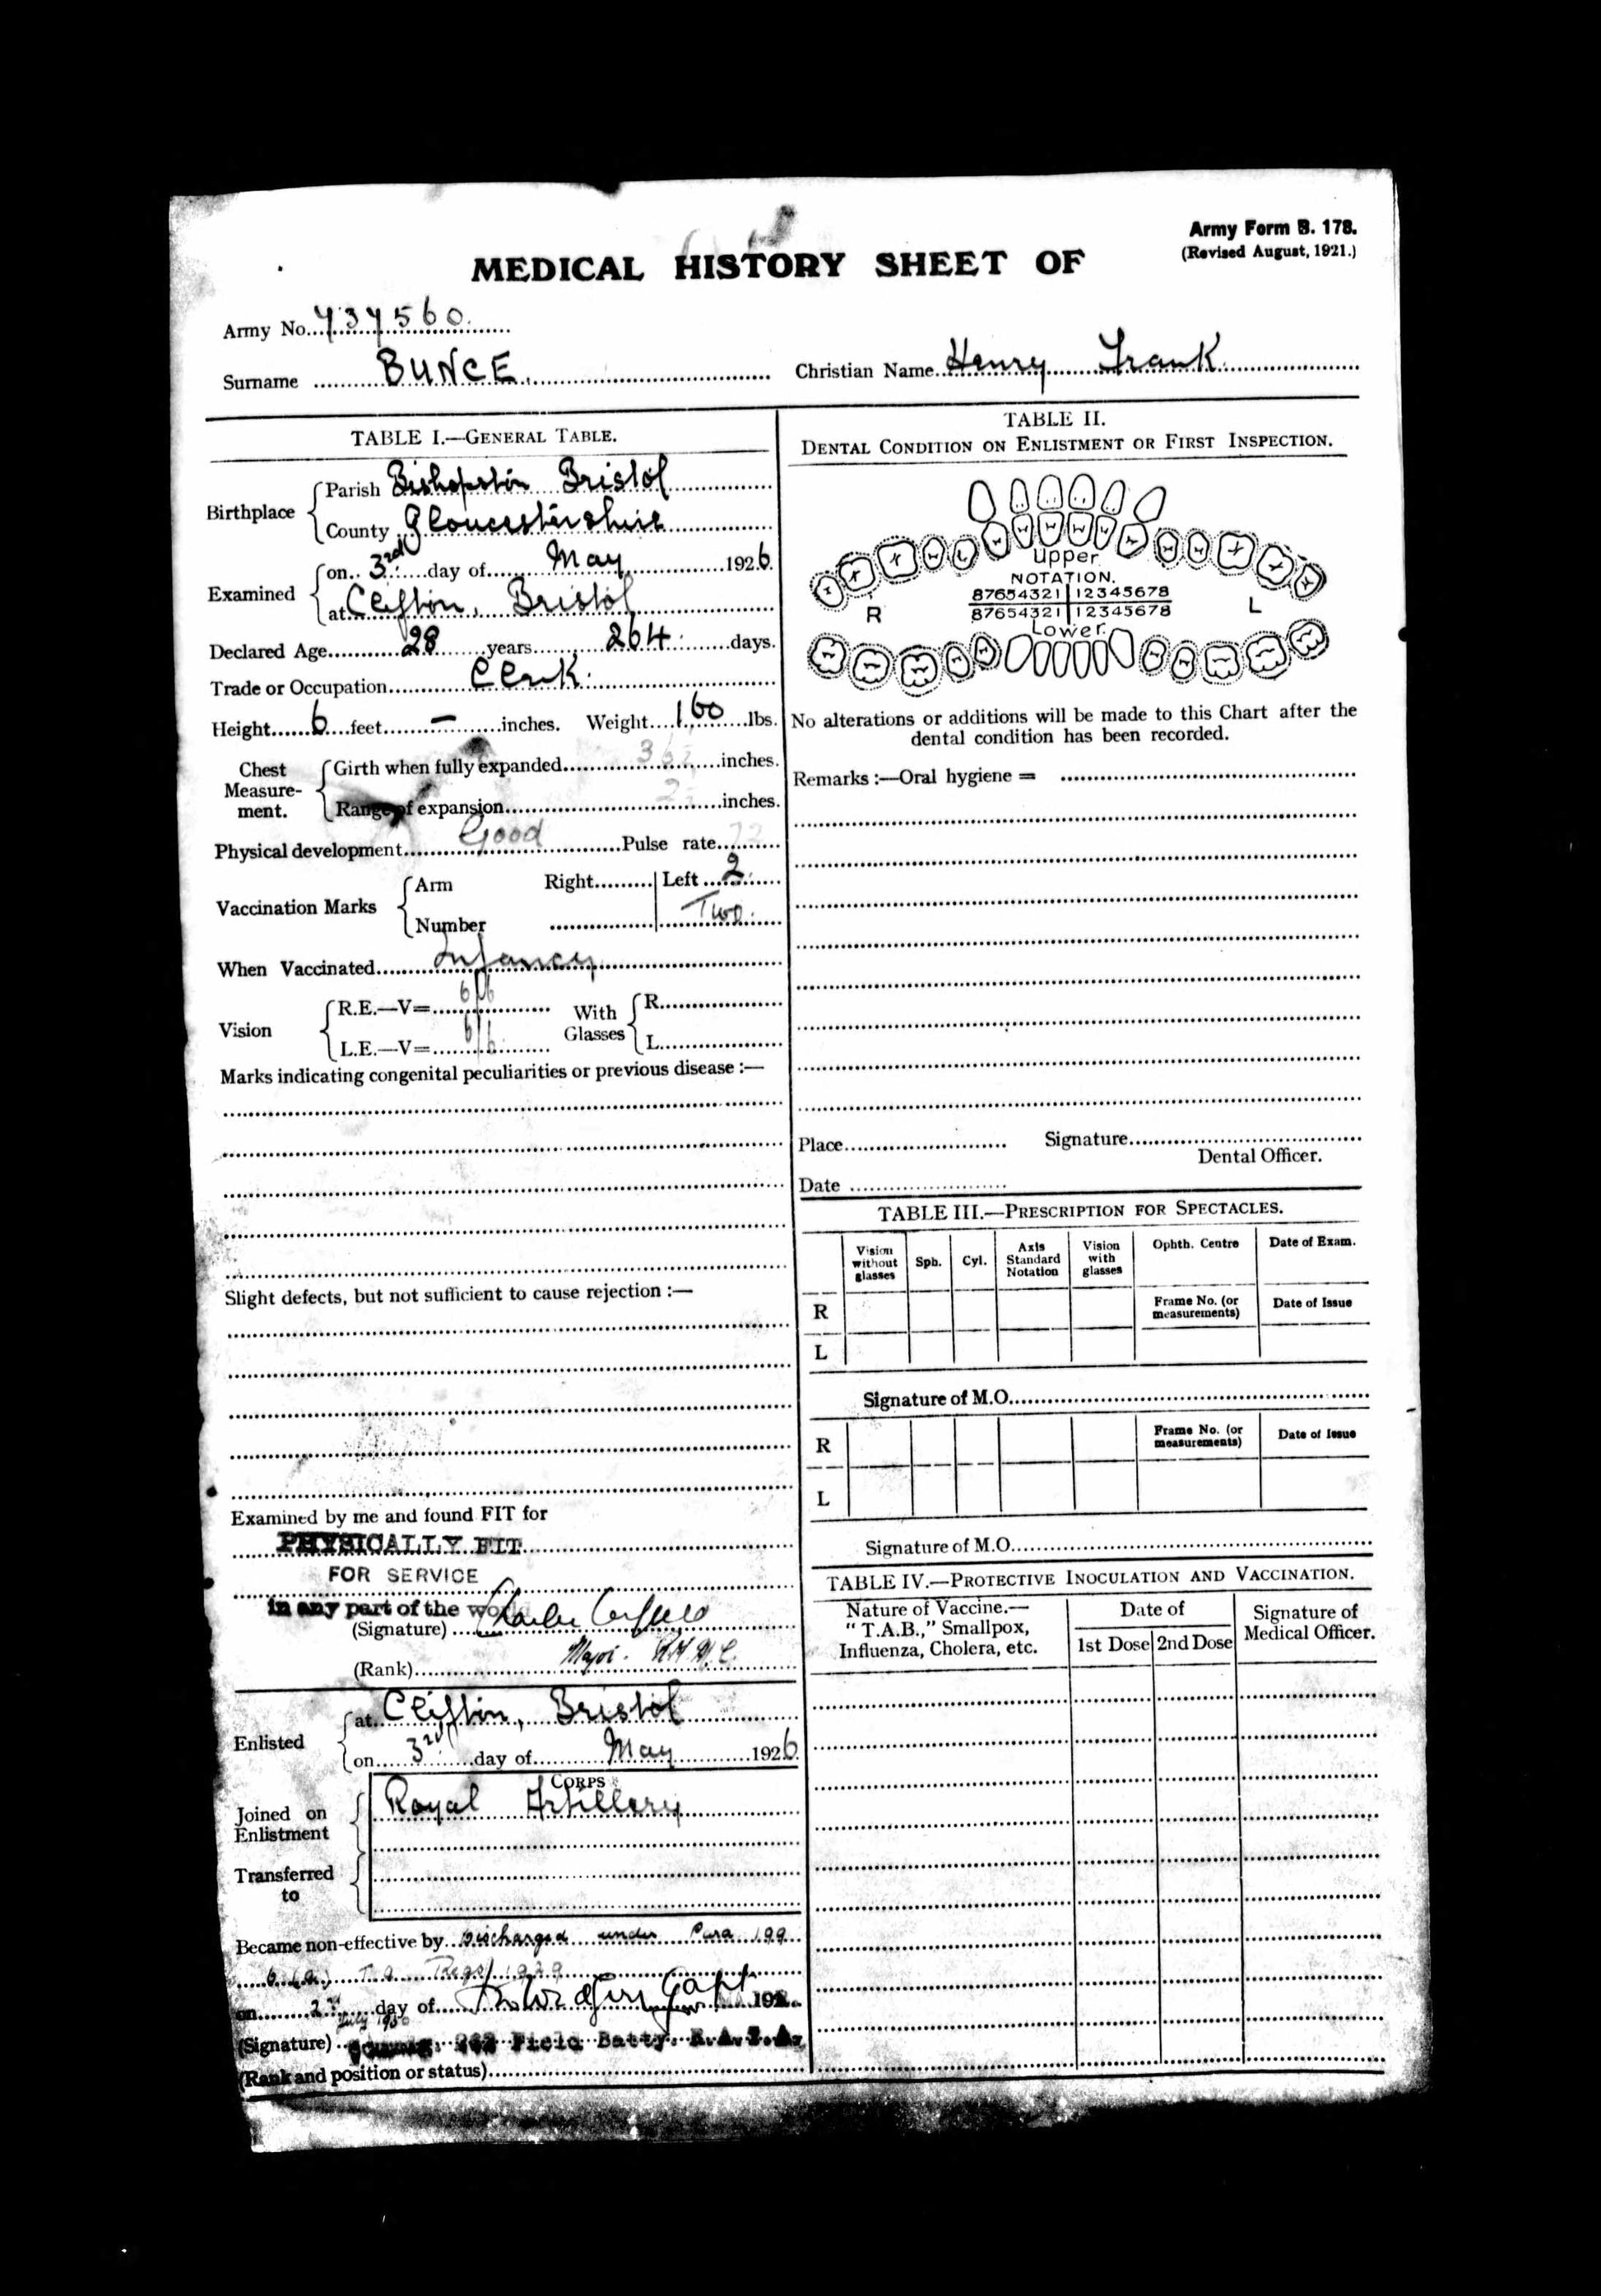 Army Form B. 178.
(Revised August, 1921.)
MEDICAL HISTORY SHEET OF
Army No. 737560.
Surname BUNCE. Christian Name Henry Frank.
TABLE I.—GENERAL TABLE.
Birthplace
Parish Bishopston Bristol
County Gloucestershire
Examined
on 3rd day of May 1926.
at Clifton, Bristol
Declared Age 28 years 264 days.
Trade or Occupation Clerk.
Height 6 feet — inches. Weight 160 lbs.
Chest Measure-ment.
Girth when fully expanded inches.
Range of expansion inches.
Physical development Good Pulse rate 72
Vaccination Marks
Arm Right Left 2.
Number Two.
When Vaccinated Infancy
Vision
R.E.—V= 6/6
L.E.—V= 6/6
With Glasses
R
L
Marks indicating congenital peculiarities or previous disease :—
Slight defects, but not sufficient to cause rejection :—
Examined by me and found FIT for
PHYSICALLY FIT
FOR SERVICE
in any part of the
(Signature) Charles
(Rank) Major. R.A.M.C.
Enlisted
at Clifton, Bristol
on 3rd day of May 1926.
CORPS
Joined on Enlistment
Royal Artillery
Transferred to
Became non-effective by Discharged under Para 199
6 (a) T.A. Regs/1929
on 2nd day of Capt. 192
July 1930
(Signature) Field Batty. R.A.T.A.
(Rank and position or status)
TABLE II.
DENTAL CONDITION ON ENLISTMENT OR FIRST INSPECTION.
Upper.
NOTATION.
87654321 12345678
87654321 12345678
R L
Lower.
No alterations or additions will be made to this Chart after the
dental condition has been recorded.
Remarks :—Oral hygiene =
Place Signature
Dental Officer.
Date
TABLE III.—PRESCRIPTION FOR SPECTACLES.
Vision without glasses Sph. Cyl. Axis Standard Notation Vision with glasses Ophth. Centre Date of Exam.
R Frame No. (or measurements) Date of Issue
L
Signature of M.O.
R Frame No. (or measurements) Date of Issue
L
Signature of M.O.
TABLE IV.—PROTECTIVE INOCULATION AND VACCINATION.
Nature of Vaccine.—
"T.A.B.," Smallpox,
Influenza, Cholera, etc.
Date of
1st Dose 2nd Dose
Signature of
Medical Officer.